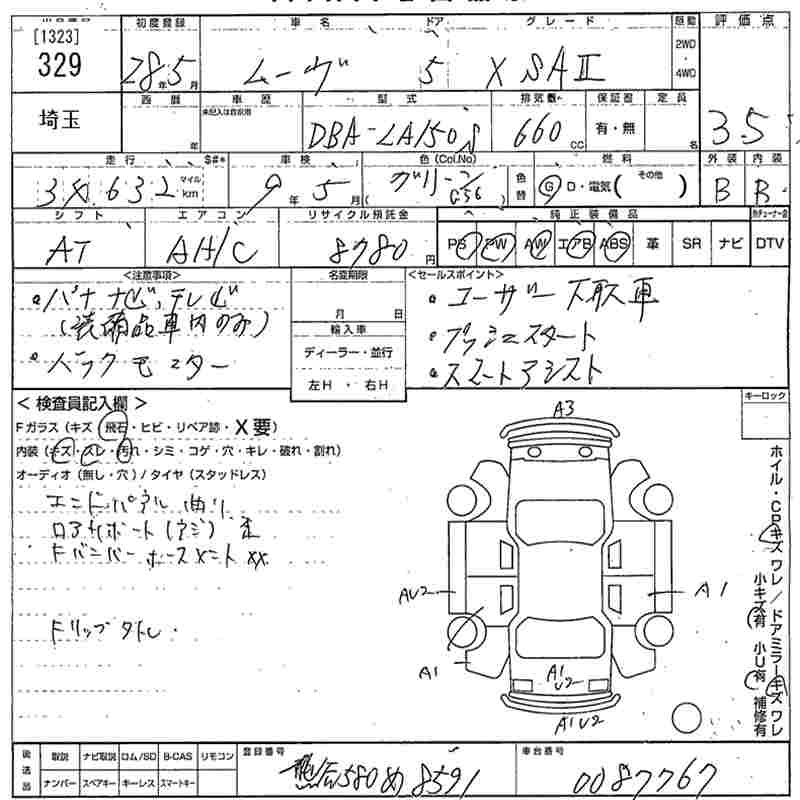 [1323]
329
初度登録
28年5月
車名
ムーヴ
ドア
5
グレード
X SAⅡ
駆動
2WD
4WD
評価点
3.5
埼玉
西暦
年
車歴
未記入は自家用
型式
DBA-LA150S
排気数
660 CC
保証書
有・無
定員
名
走行
S#*
マイル
km
車検
9年5月
色(Col.No)
グリーン
G56
色替
燃料
G D・電気( その他 )
外装
B
内装
B
シフト
AT
エアコン
AA/C
リサイクル預託金
8780円
純正装備品
PS PW AW エアB ABS 革 SR ナビ DTV
<注意事項>
・パナナビ,テレビ
(装備品車内のみ)
・バックモニター
名変期限
月 日
輸入車
ディーラー・並行
左H・右H
<セールスポイント>
・ユーザー下取車
・プッシュスタート
・スマートアシスト
<検査員記入欄>
Fガラス(キズ・飛石・ヒビ・リペア跡・X要)
内装(キズ・スレ・汚れ・シミ・コゲ・穴・キレ・破れ・割れ)
オーディオ(無し・穴)/タイヤ(スタッドレス)
エンドパネル 曲り
ロアサポート(アジ)
Fバンパー ホースメント XX
キーロック
ホイル・CPキズ ワレ/ドアミラーキズ ワレ
小キズ有 小U有 補修有
A3
AU2
A1
A1
A1
U2
A1U2
後送品
取説 ナビ取説 ロム/SD B-CAS リモコン
ナンバー スペアキー キーレス スマートキー
登録番号
580 め 8591
車台番号
0087767